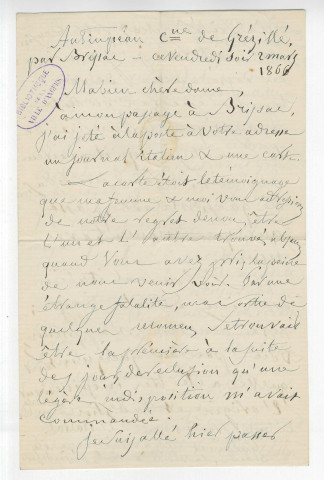 Aubinpéan Cne de Grézillé,
par Brissac — ce vendredi soir 2 mars
1866
BIBLIOTHÈQUE DE LA VILLE D'ANGERS
Ma bien chère dame,
à mon passage à Brissac,
j'ai jeté à la poste à votre adresse
un journal italien & une carte.
La carte était le témoignage
que ma femme & moi vous adressions
de notre regret de nous être
l'un et l'autre trouvés absens
quand vous avez pris la peine
de nous venir voir. Par une
étrange fatalité, ma sortie de
quelques momens, se trouvait
être la première à la suite
des jours de reclusion qu'une
légère indisposition m'avait
commandée.
Je suis allé hier passer